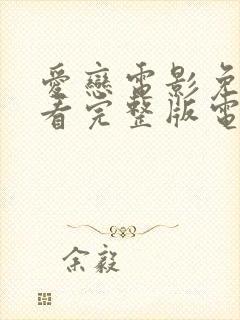 愛戀電影免
看完整版電
余毅